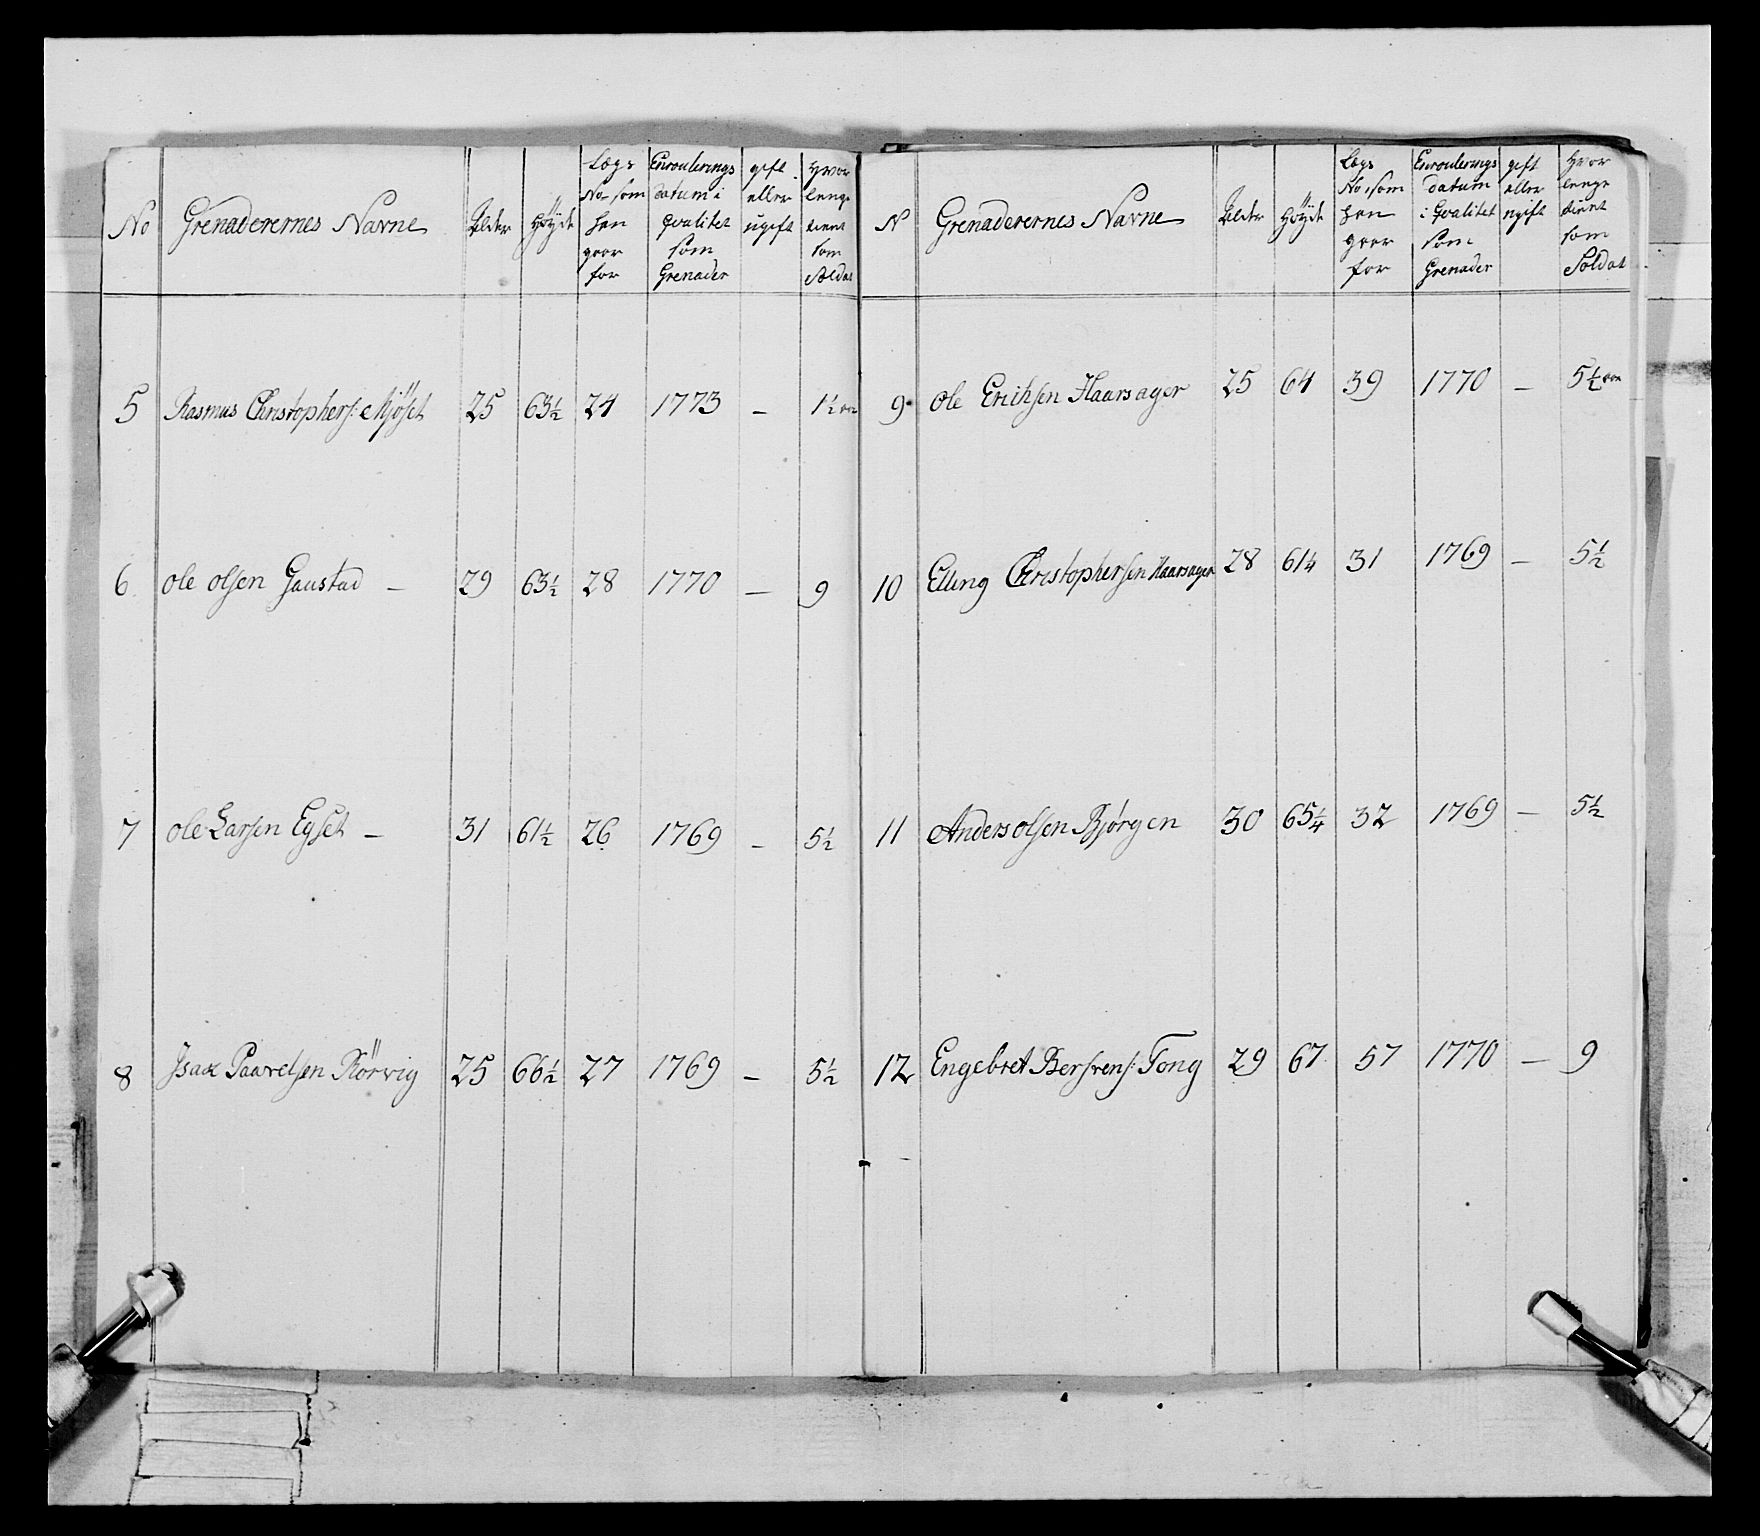 No | Grenaderernes Navne | Alder | Høyde | Lægs No som han goer for | Enroulerings datum i qvalitet som Grenader | gift eller ugift | hvor lenge tient som Soldat
5 | Rasmus Christophers: Mjöset | 25 | 63½ | 24 | 1773 | – | 1½ aar
6 | ole olsen Gaustad – | 29 | 63½ | 28 | 1770 | – | 9
7 | ole Larsen Egset – | 31 | 61½ | 26 | 1769 | – | 5½
8 | Isax Paavelsen Rörvig | 25 | 66½ | 27 | 1769 | – | 5½
N | Grenaderernes Navne | Alder | Høyde | Lægs No som han goer for | Enroulerings datum i Qvalitet som Grenader | gift eller ugift | hvor lenge tient som Soldat
9 | ole Erichsen Haarsager | 25 | 64 | 39 | 1770 | – | 5½ aar
10 | Elling Christophersen Haarsager | 28 | 61¼ | 31 | 1769 | – | 5½
11 | Anders olsen Bjørgen | 30 | 65¼ | 32 | 1769 | – | 5½
12 | Engebret Tong | 29 | 67 | 57 | 1770 | – | 9